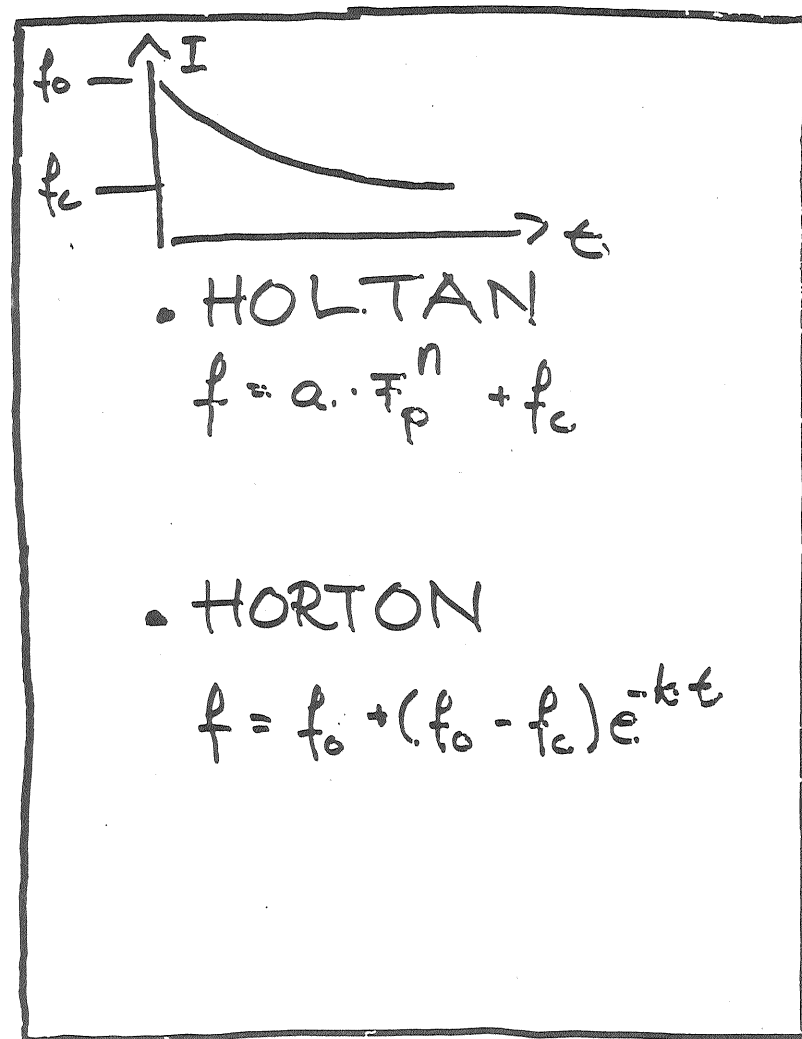 I
f₀
f_c
t
• HOLTAN
f = a · F_p^n + f_c
• HORTON
f = f₀ + (f₀ - f_c) e^{-k·t}